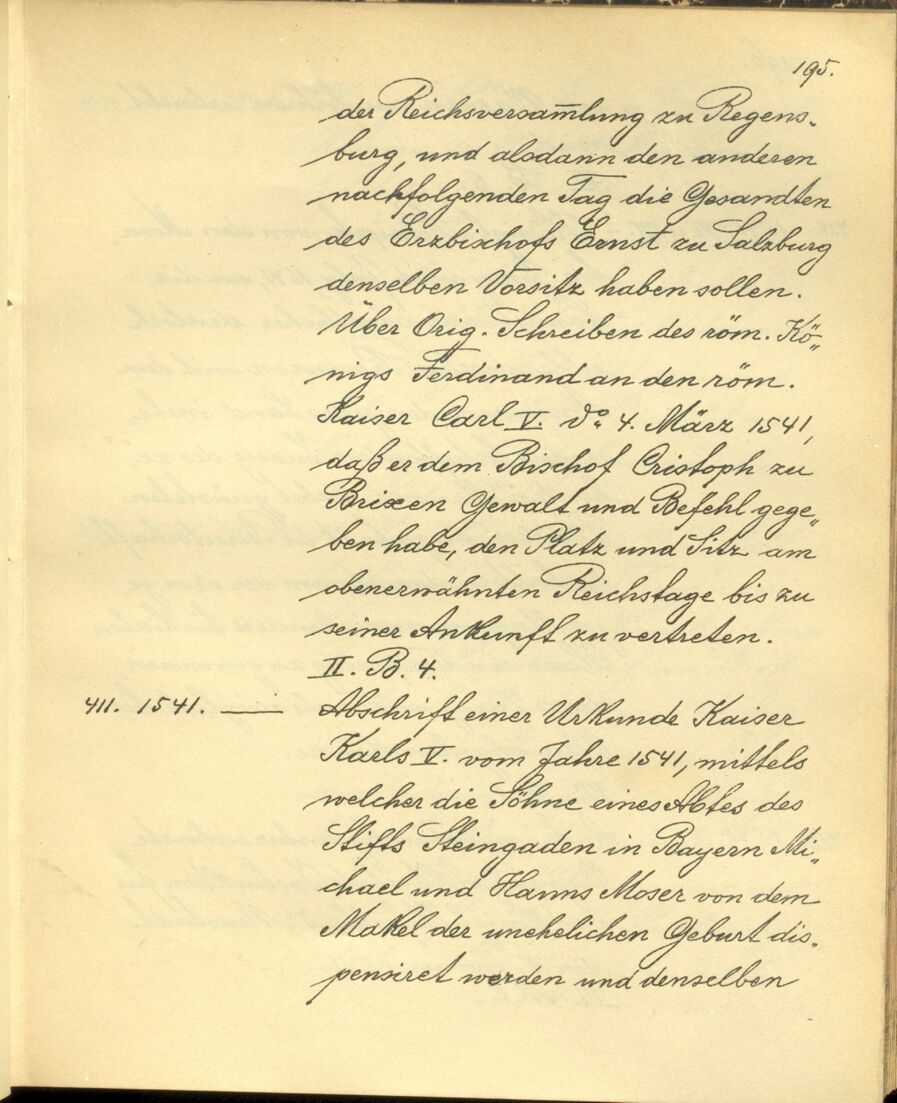 195.
der Reichsversam̅lung zu Regens-
burg, und alsdann den anderen
nachfolgenden Tag die Gesandten
des Erzbischofs Ernst zu Salzburg
denselben Vorsitz haben sollen.
Über Orig. Schreiben des röm. Kö„
nigs Ferdinand an den röm.
Kaiser Carl V. dº. 4. März 1541,
daß er dem Bischof Cristoph zu
Brixen Gewalt und Befehl gege„
ben habe, den Platz und Sitz am
obenerwähnten Reichstage bis zu
seiner Ankunft zu vertreten.
II. B. 4.
411. 1541. — Abschrift einer Urkunde Kaiser
Karls V. vom Jahre 1541, mittels
welcher die Söhne eines Abtes des
Stifts Steingaden in Bayern Mi„
chael und Hanns Moser von dem
Makel der unehelichen Geburt dis-
pensiret werden und denselben